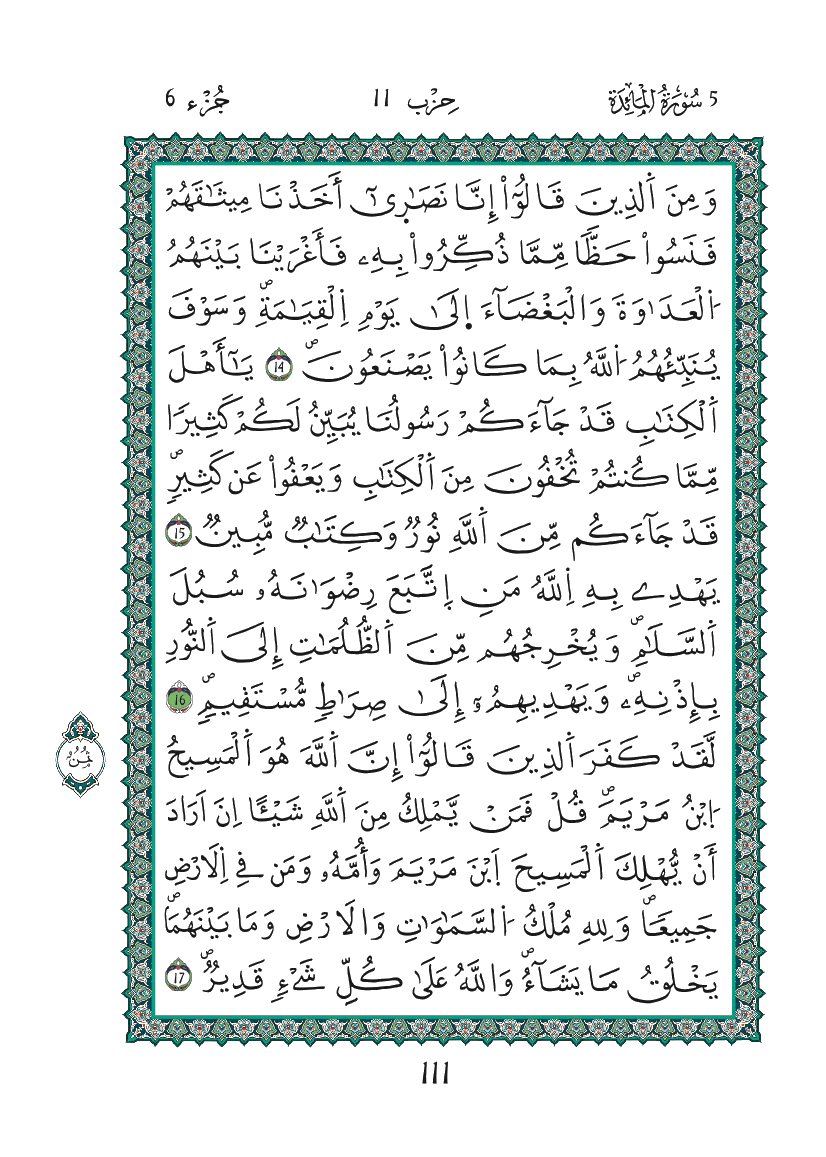 5 سُورَةُ الْمَائِدَة حِزْب 11 جُزْء 6
وَمِنَ اَ۬لذِينَ قَالُوٓاْ إِنَّا نَصَٰر۪يٰٓ أَخَذْنَا مِيثَٰقَهُمْ
فَنَسُواْ حَظّاٗ مِّمَّا ذُكِّرُواْ بِهِۦ فَأَغْرَيْنَا بَيْنَهُمُ
اُ۬لْعَدَٰوَةَ وَالْبَغْضَآءَ ا۪لَيٰ يَوْمِ اِ۬لْقِيَٰمَةِۖ وَسَوْفَ
يُنَبِّئُهُمُ اُ۬للَّهُ بِمَا كَانُواْ يَصْنَعُونَۖ 14 يَٰٓأَهْلَ
اَ۬لْكِتَٰبِ قَدْ جَآءَكُمْ رَسُولُنَا يُبَيِّنُ لَكُمْ كَثِيراٗ
مِّمَّا كُنتُمْ تُخْفُونَ مِنَ اَ۬لْكِتَٰبِ وَيَعْفُواْ عَن كَثِيرٖۖ
قَدْ جَآءَكُم مِّنَ اَ۬للَّهِ نُورٞ وَكِتَٰبٞ مُّبِينٞ 15
يَهْدِے بِهِ اِ۬للَّهُ مَنِ اِ۪تَّبَعَ رِضْوَٰنَهُۥ سُبُلَ
اَ۬لسَّلَٰمِۖ وَيُخْرِجُهُم مِّنَ اَ۬لظُّلُمَٰتِ إِلَي اَ۬لنُّورِ
بِإِذْنِهِۖۦ وَيَهْدِيهِمُۥٓ إِلَيٰ صِرَٰطٖ مُّسْتَقِيمٖۖ 16
ثُمُن
لَّقَدْ كَفَرَ اَ۬لذِينَ قَالُوٓاْ إِنَّ اَ۬للَّهَ هُوَ اَ۬لْمَسِيحُ
اُ۪بْنُ مَرْيَمَۖ قُلْ فَمَنْ يَّمْلِكُ مِنَ اَ۬للَّهِ شَيْـٔاً اِنَ اَرَادَ
أَنْ يُّهْلِكَ اَ۬لْمَسِيحَ اَ۪بْنَ مَرْيَمَ وَأُمَّهُۥ وَمَن فِے اِ۬لَارْضِ
جَمِيعاٗۖ وَلِلهِ مُلْكُ اُ۬لسَّمَٰوَٰتِ وَالَارْضِ وَمَا بَيْنَهُمَاۖ
يَخْلُقُ مَا يَشَآءُۖ وَاللَّهُ عَلَيٰ كُلِّ شَےْءٖ قَدِيرٞۖ 17
111